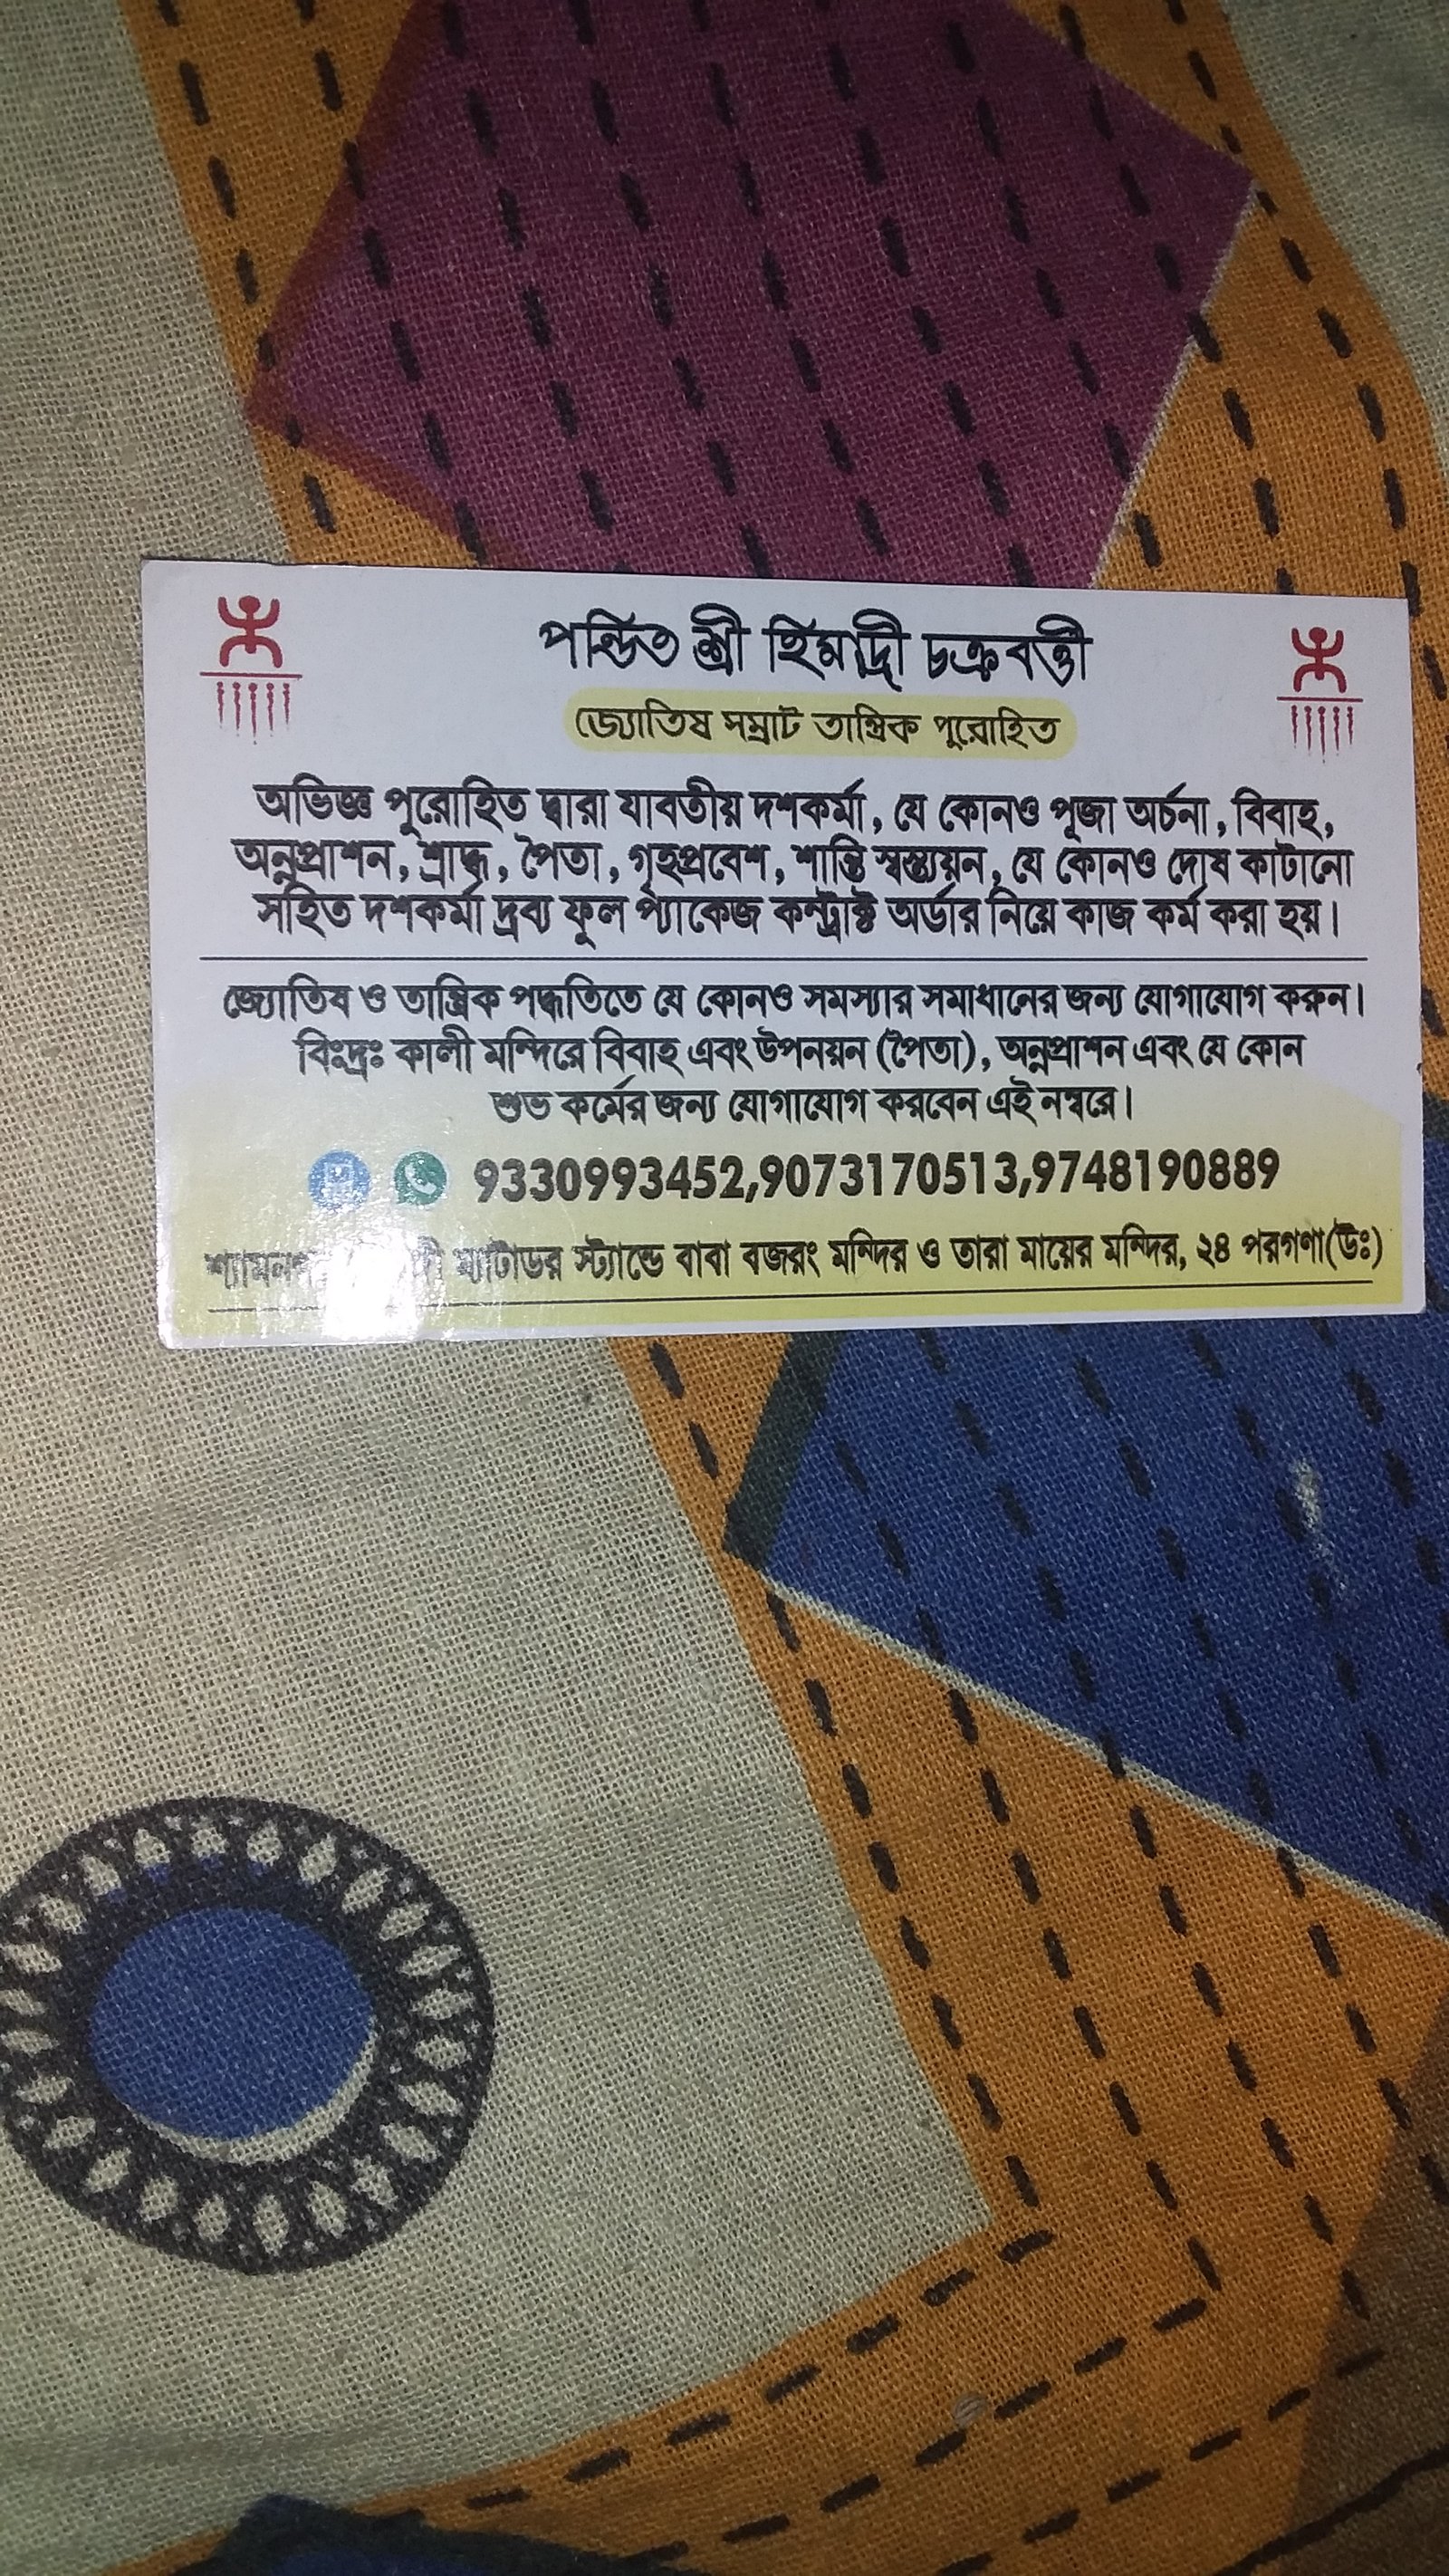 পন্ডিত শ্রী হিমাদ্রী চক্রবর্ত্তী
জ্যোতিষ সম্রাট তান্ত্রিক পুরোহিত
অভিজ্ঞ পুরোহিত দ্বারা যাবতীয় দশকর্মা, যে কোনও পূজা অর্চনা, বিবাহ,
অন্নপ্রাশন, শ্রাদ্ধ, পৈতা, গৃহপ্রবেশ, শান্তি স্বস্ত্যয়ন, যে কোনও দোষ কাটানো
সহিত দশকর্মা দ্রব্য ফুল প্যাকেজ কন্ট্রাক্ট অর্ডার নিয়ে কাজ কর্ম করা হয়।
জ্যোতিষ ও তান্ত্রিক পদ্ধতিতে যে কোনও সমস্যার সমাধানের জন্য যোগাযোগ করুন।
বিঃদ্রঃ কালী মন্দিরে বিবাহ এবং উপনয়ন (পৈতা), অন্নপ্রাশন এবং যে কোন
শুভ কর্মের জন্য যোগাযোগ করবেন এই নম্বরে।
9330993452,9073170513,9748190889
ম্যাটাডর স্ট্যান্ডে বাবা বজরং মন্দির ও তারা মায়ের মন্দির, ২৪ পরগণা(উঃ)